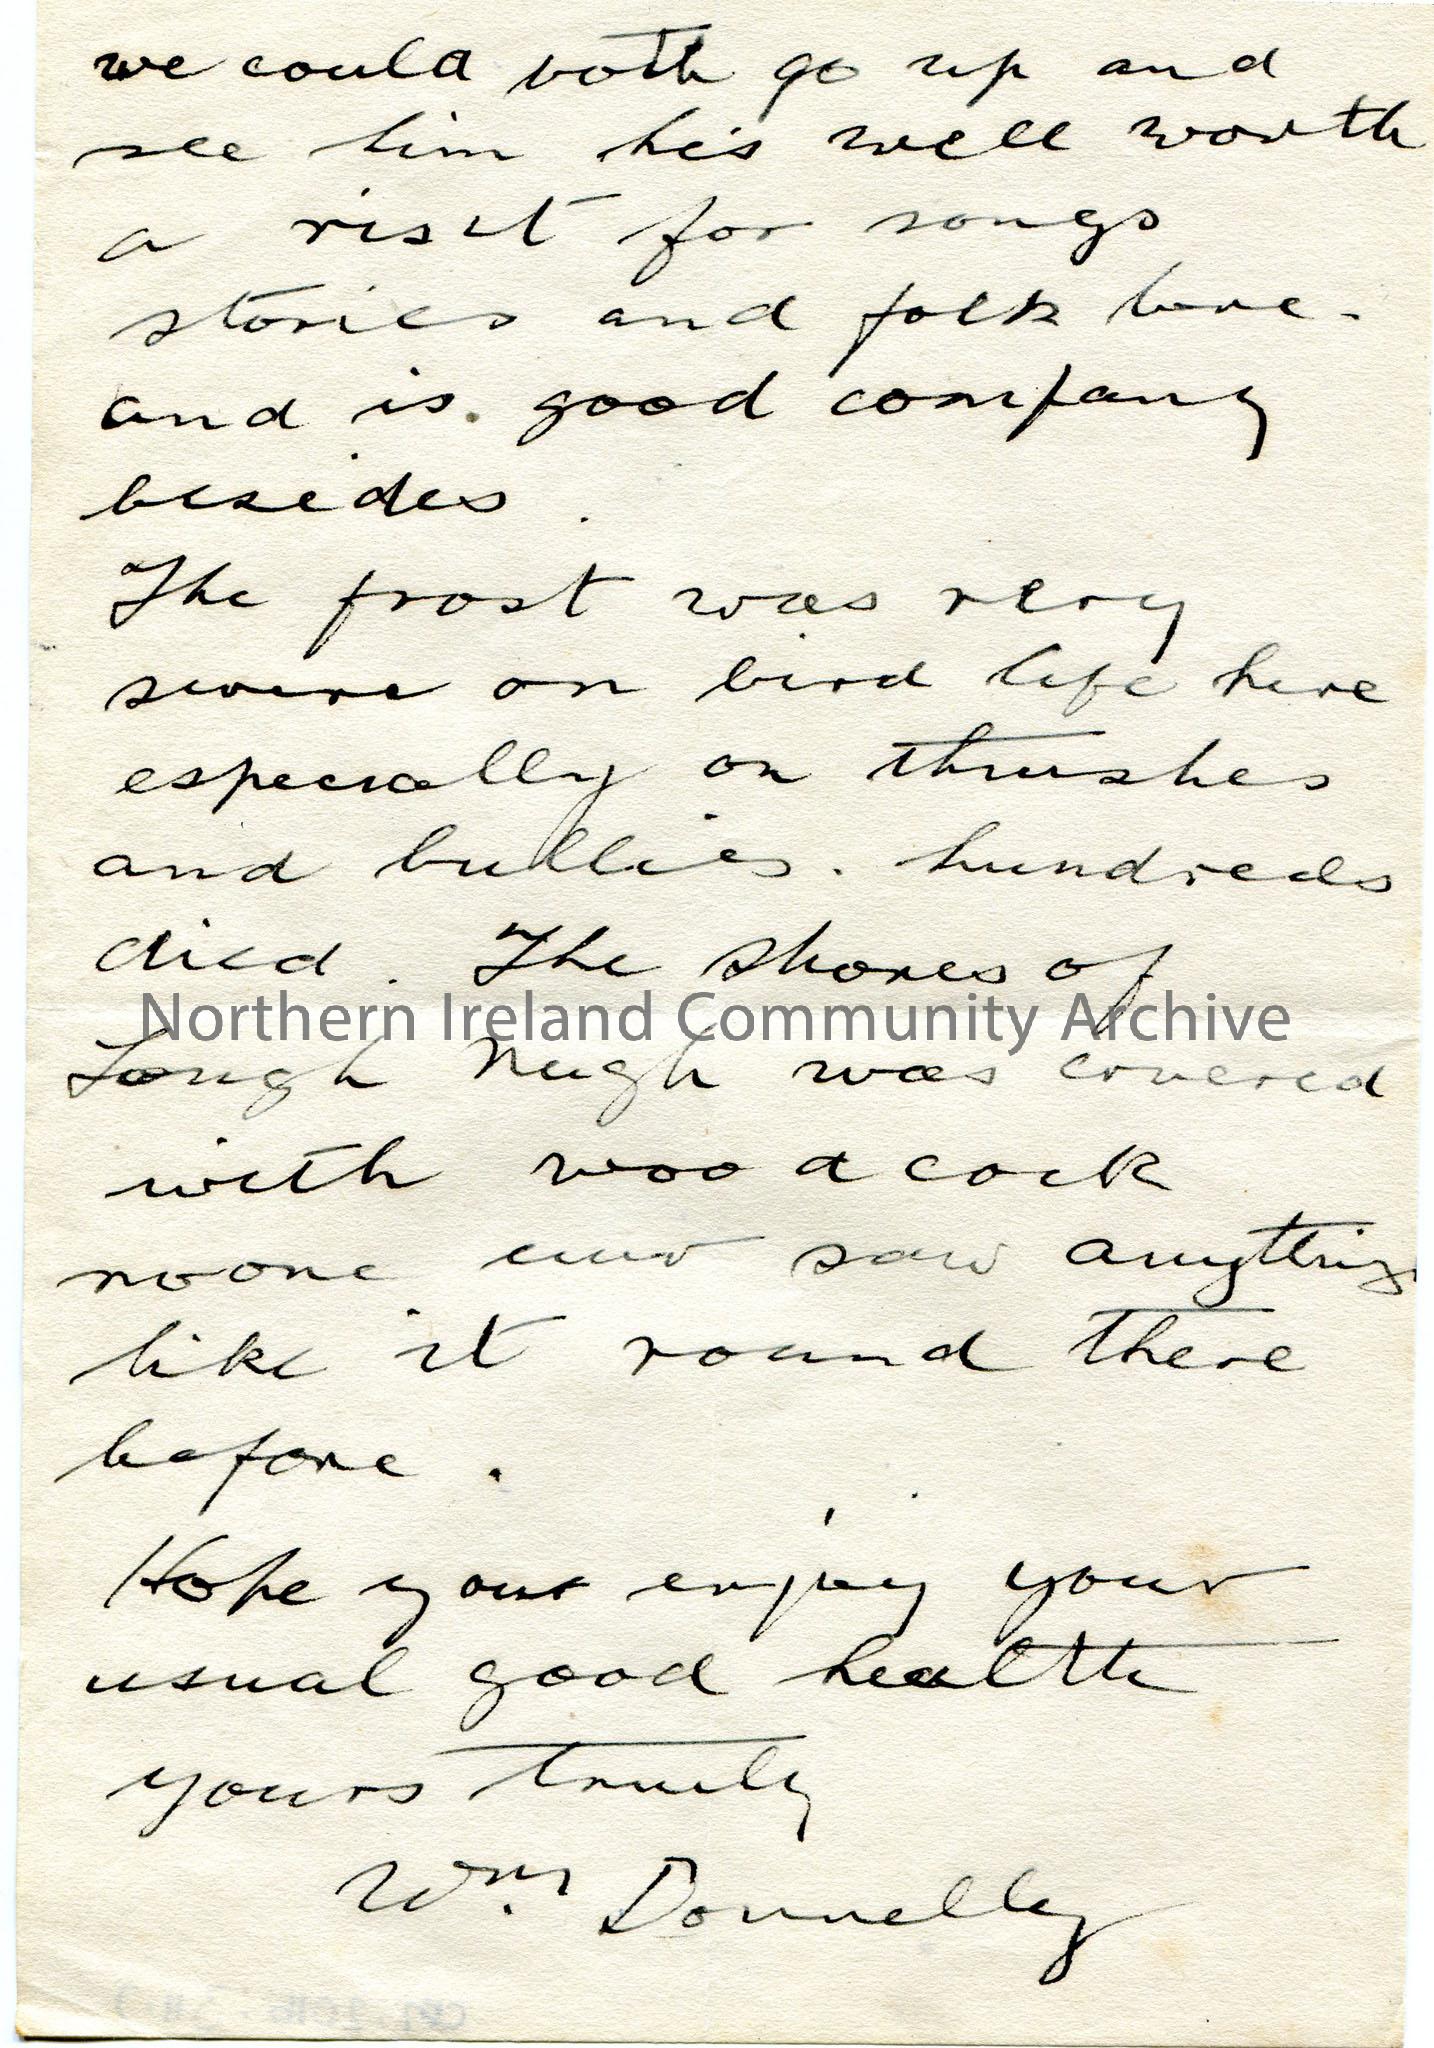 we could both go up and
see him his well worth
a visit for songs
stories and folk lore.
and is good company
besides.
The frost was very
severe on bird life here
especially on thrushes
and bullies. hundreds
died. The shores of
Northern Ireland Community Archive
Lough Neagh was covered
with woodcock
noone ever saw anything
like it round there
before.
Hope your enjoy your
usual good health
yours truly
Wm. Donnelly